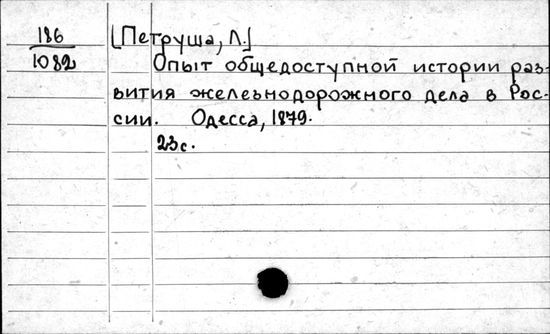 186 [Петруша, Л.]
1082 Опыт общедоступной истории раз-
вития железнодорожного дела в Рос-
сии. Одесса, 1879.
23 с.